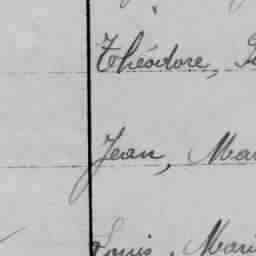 Théodore,
Jean, Mar
Louis, Mari